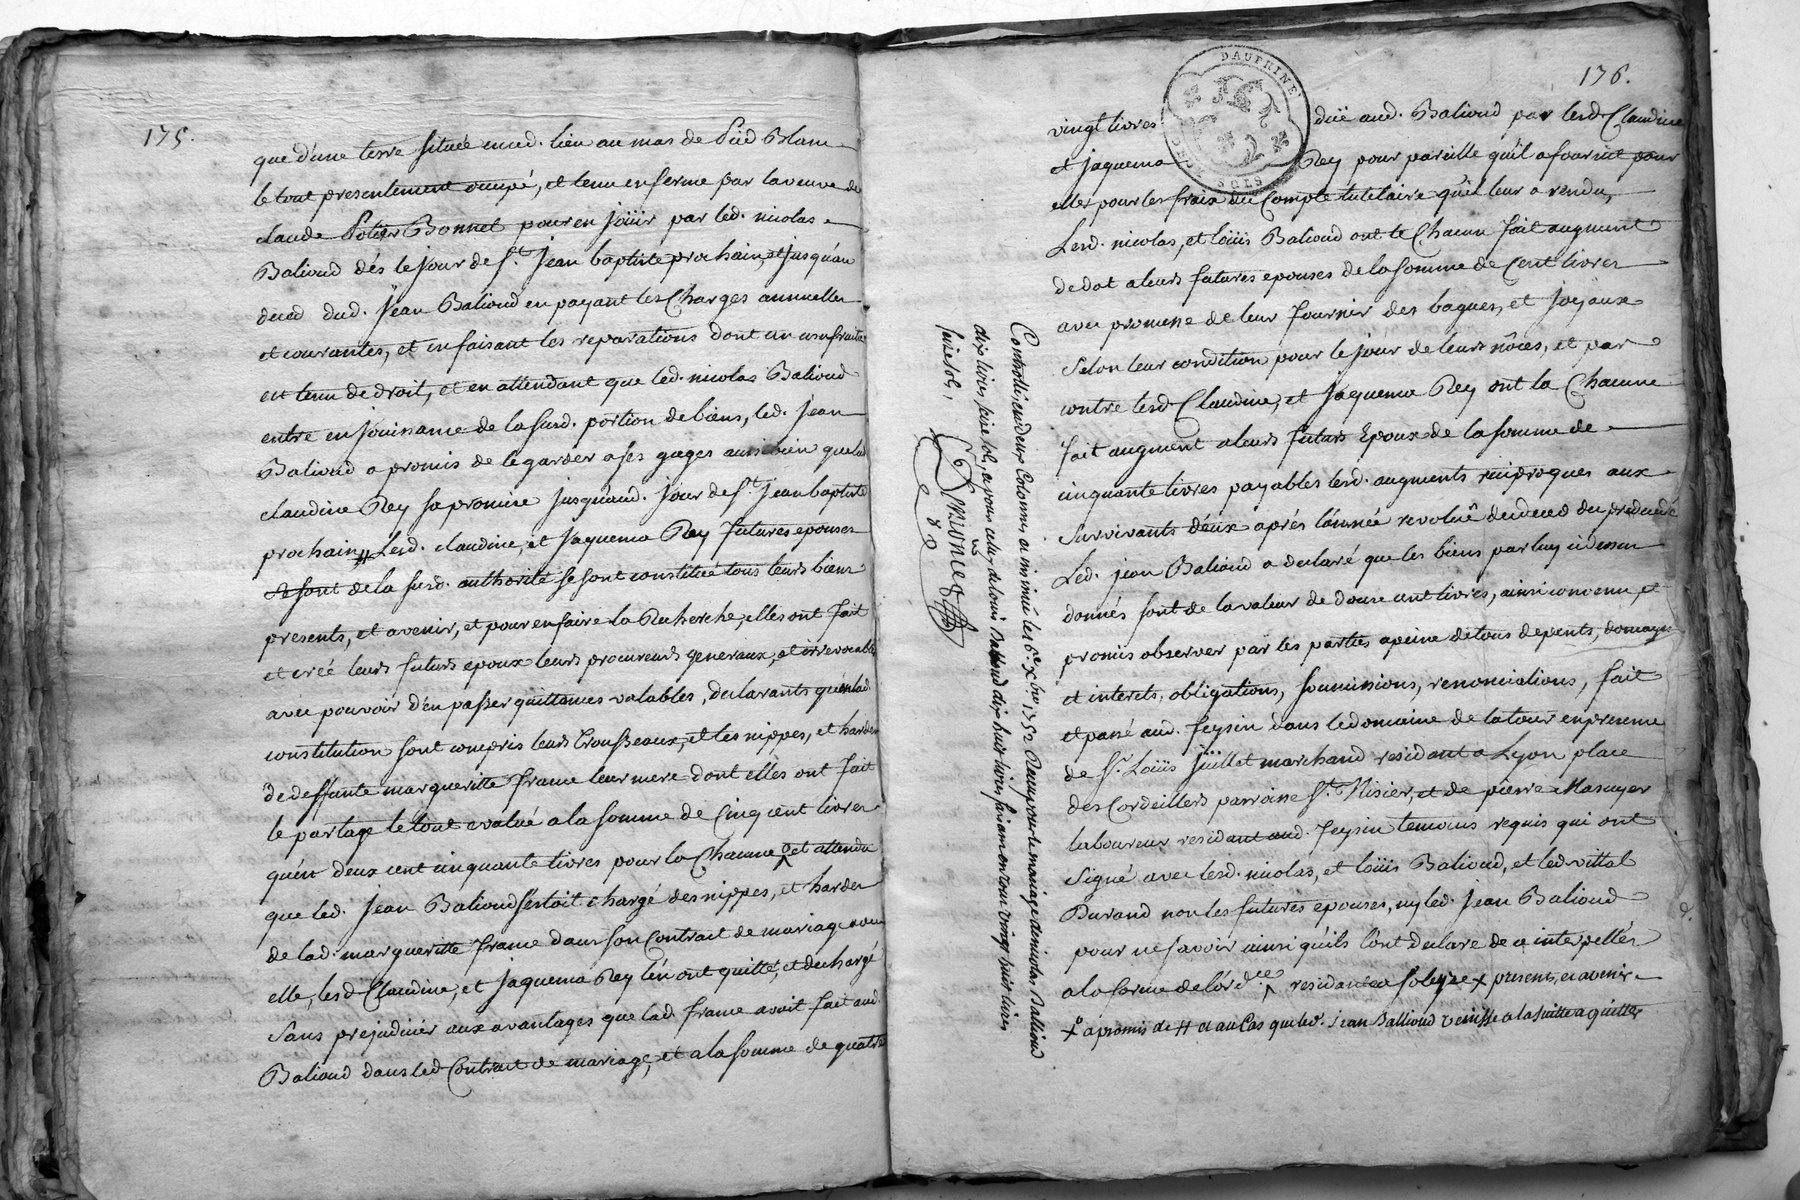 175.
que d'une terre située aud. lieu au mas de Pied Blanc
le tout presentement occupé, et tenu en ferme par la veuve de
claude Bonnet pour en joüir par led. nicolas
Balioud dés le jour de St. Jean baptiste prochain, et jusqu'au
deced dud. Jean Balioud en payant les Charges annuelles
et courantes, et en faisant les reparations dont un usufruitier
est tenu de droit, et en attendant que led. nicolas Balioud
entre en jouissance de la susd. portion de biens, led. Jean
Balioud a promis de le garder a ses gages aussi bien que lad.
claudine Rey sa promise jusqu'aud. jour de St. jean baptiste
prochain # Lesd. claudine, et Jaquema Rey futures epouses
se sont de la susd. authorité se sont constitué tous leurs biens
presents, et avenir, et pour en faire la Recherche, elles ont fait
et créé leurs futurs epoux leurs procureurs generaux, et irrevocables
avec pouvoir d'en passer quittances valables, declarants qu'en lad.
constitution sont compris leurs trousseaux, et les nippes, et hardes
de deffunte margueritte frame leur mere dont elles ont fait
le partage le tout evalué a la somme de Cinq cent livres
qu'est deux cent cinquante livres pour la Chacune et attendu
que led. Jean Balioud s'estoit chargé des nippes, et hardes
de lad. margueritte frame dans son Contrat de mariage avec
elle, lesd. Claudine, et Jaquema Rey l'en ont quitté, et dechargé
sans prejudicier aux avantages que lad. frame avoit fait aud.
Balioud dans led. Contrat de mariage, et a la somme de quatre
176.
DAUPHINE
SOLS
vingt livres düe aud. Balioud par lesd. Claudine
et Jaquema Rey pour pareille qu'il a fournit pour
elles pour les fraix du Compte tutelaire qu'il leur a rendu,
Lesd. nicolas, et loüis Balioud ont le Chacun fait augment
de dot a leurs futures epouses de la somme de Cent livres
avec promesse de leur fournir des bagues, et joyaux
selon leur condition pour le jour de leurs nôces, et par
contre lesd. Claudine, et Jaquema Rey ont la Chacune
fait augment a leurs futurs Epoux de la somme de
cinquante livres payables lesd. augments reciproques aux
survivants d'eux aprés l'année revoluë du deced du predecedé
Led. jean Balioud a declaré que les biens par luy cidessus
donnés sont de la valeur de douze cent livres, ainsi convenu, et
promis observer par les parties a peine de tous depents, domages
et interets, obligations, soumissions, renonciations, fait
et passé aud. feysin dans le domaine de la tour en presence
de Sr. Loüis Juillet marchand residant a Lyon place
des Cordeillers parroisse St. Nisier, et de pierre Masuyer
laboureur residant aud. feysin temoins requis qui ont
signé avec lesd. nicolas, et loüis Balioud, et led. vittal
Durand non les futures epouses, ny led. Jean Balioud
pour ne sçavoir ainsi qu'ils l'ont declare de ce interpellés
a la forme de l'ord.ce residant a Soleyze x presents, et avenir
x a promis de # et au Cas que led. Jean Ballioud veniss a la suitte a quitter
Controllé, en deux Colonnes a le 6e. xbre 1752 pour le mariage de nicolas Balliod
dix livres seize sols, a vous celuy de louis Balliod dix huit livres faisant en tout vingt huit livres
seize sols,